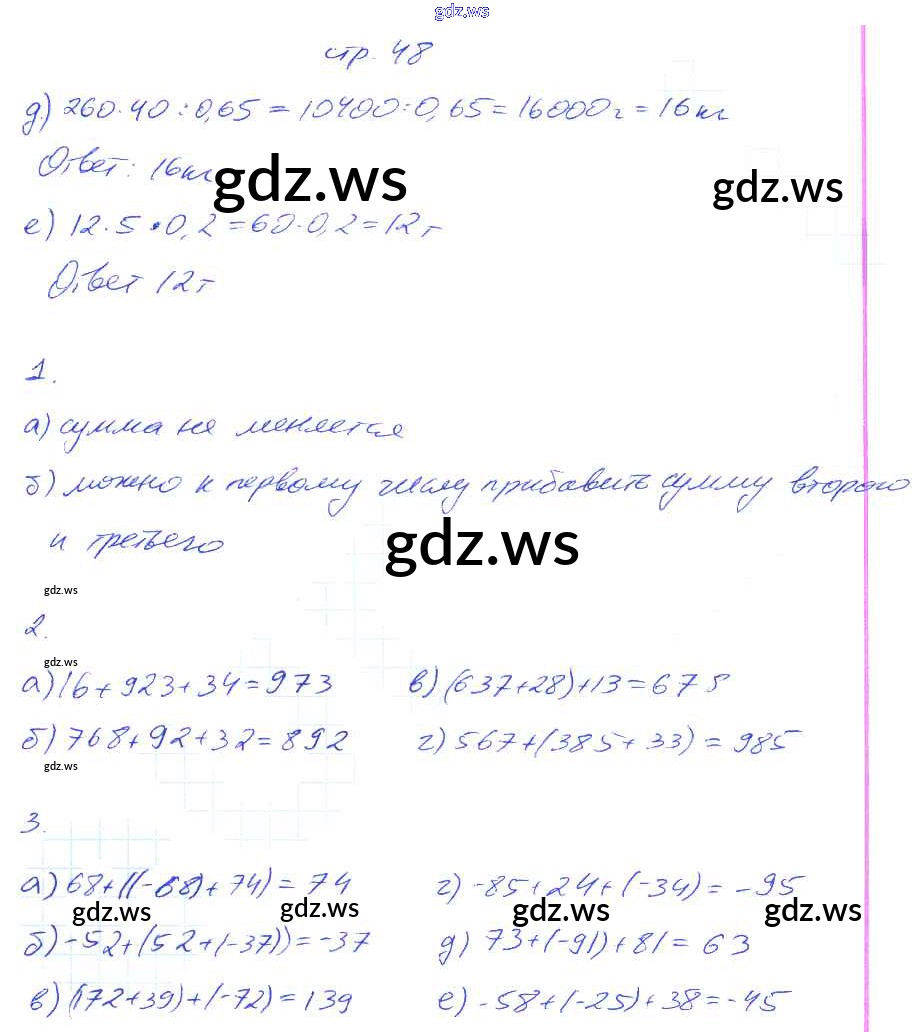 gdz.ws
стр. 48
д) 260·40:0,65=10400:0,65=16000г=16кг
Ответ: 16кг
gdz.ws
gdz.ws
е) 12·5·0,2=60·0,2=12т
Ответ 12т
1.
а) сумма не меняется
б) можно к первому числу прибавить сумму второго
и третьего
gdz.ws
gdz.ws
2.
gdz.ws
а) 16+923+34=973 в) (637+28)+13=678
б) 768+92+32=892 г) 567+(385+33)=985
gdz.ws
3.
а) 68+((-68)+74)=74 г) -85+24+(-34)=-95
gdz.ws gdz.ws gdz.ws gdz.ws
б) -52+(52+(-37))=-37 д) 73+(-91)+81=63
в) (172+39)+(-72)=139 е) -58+(-25)+38=-45